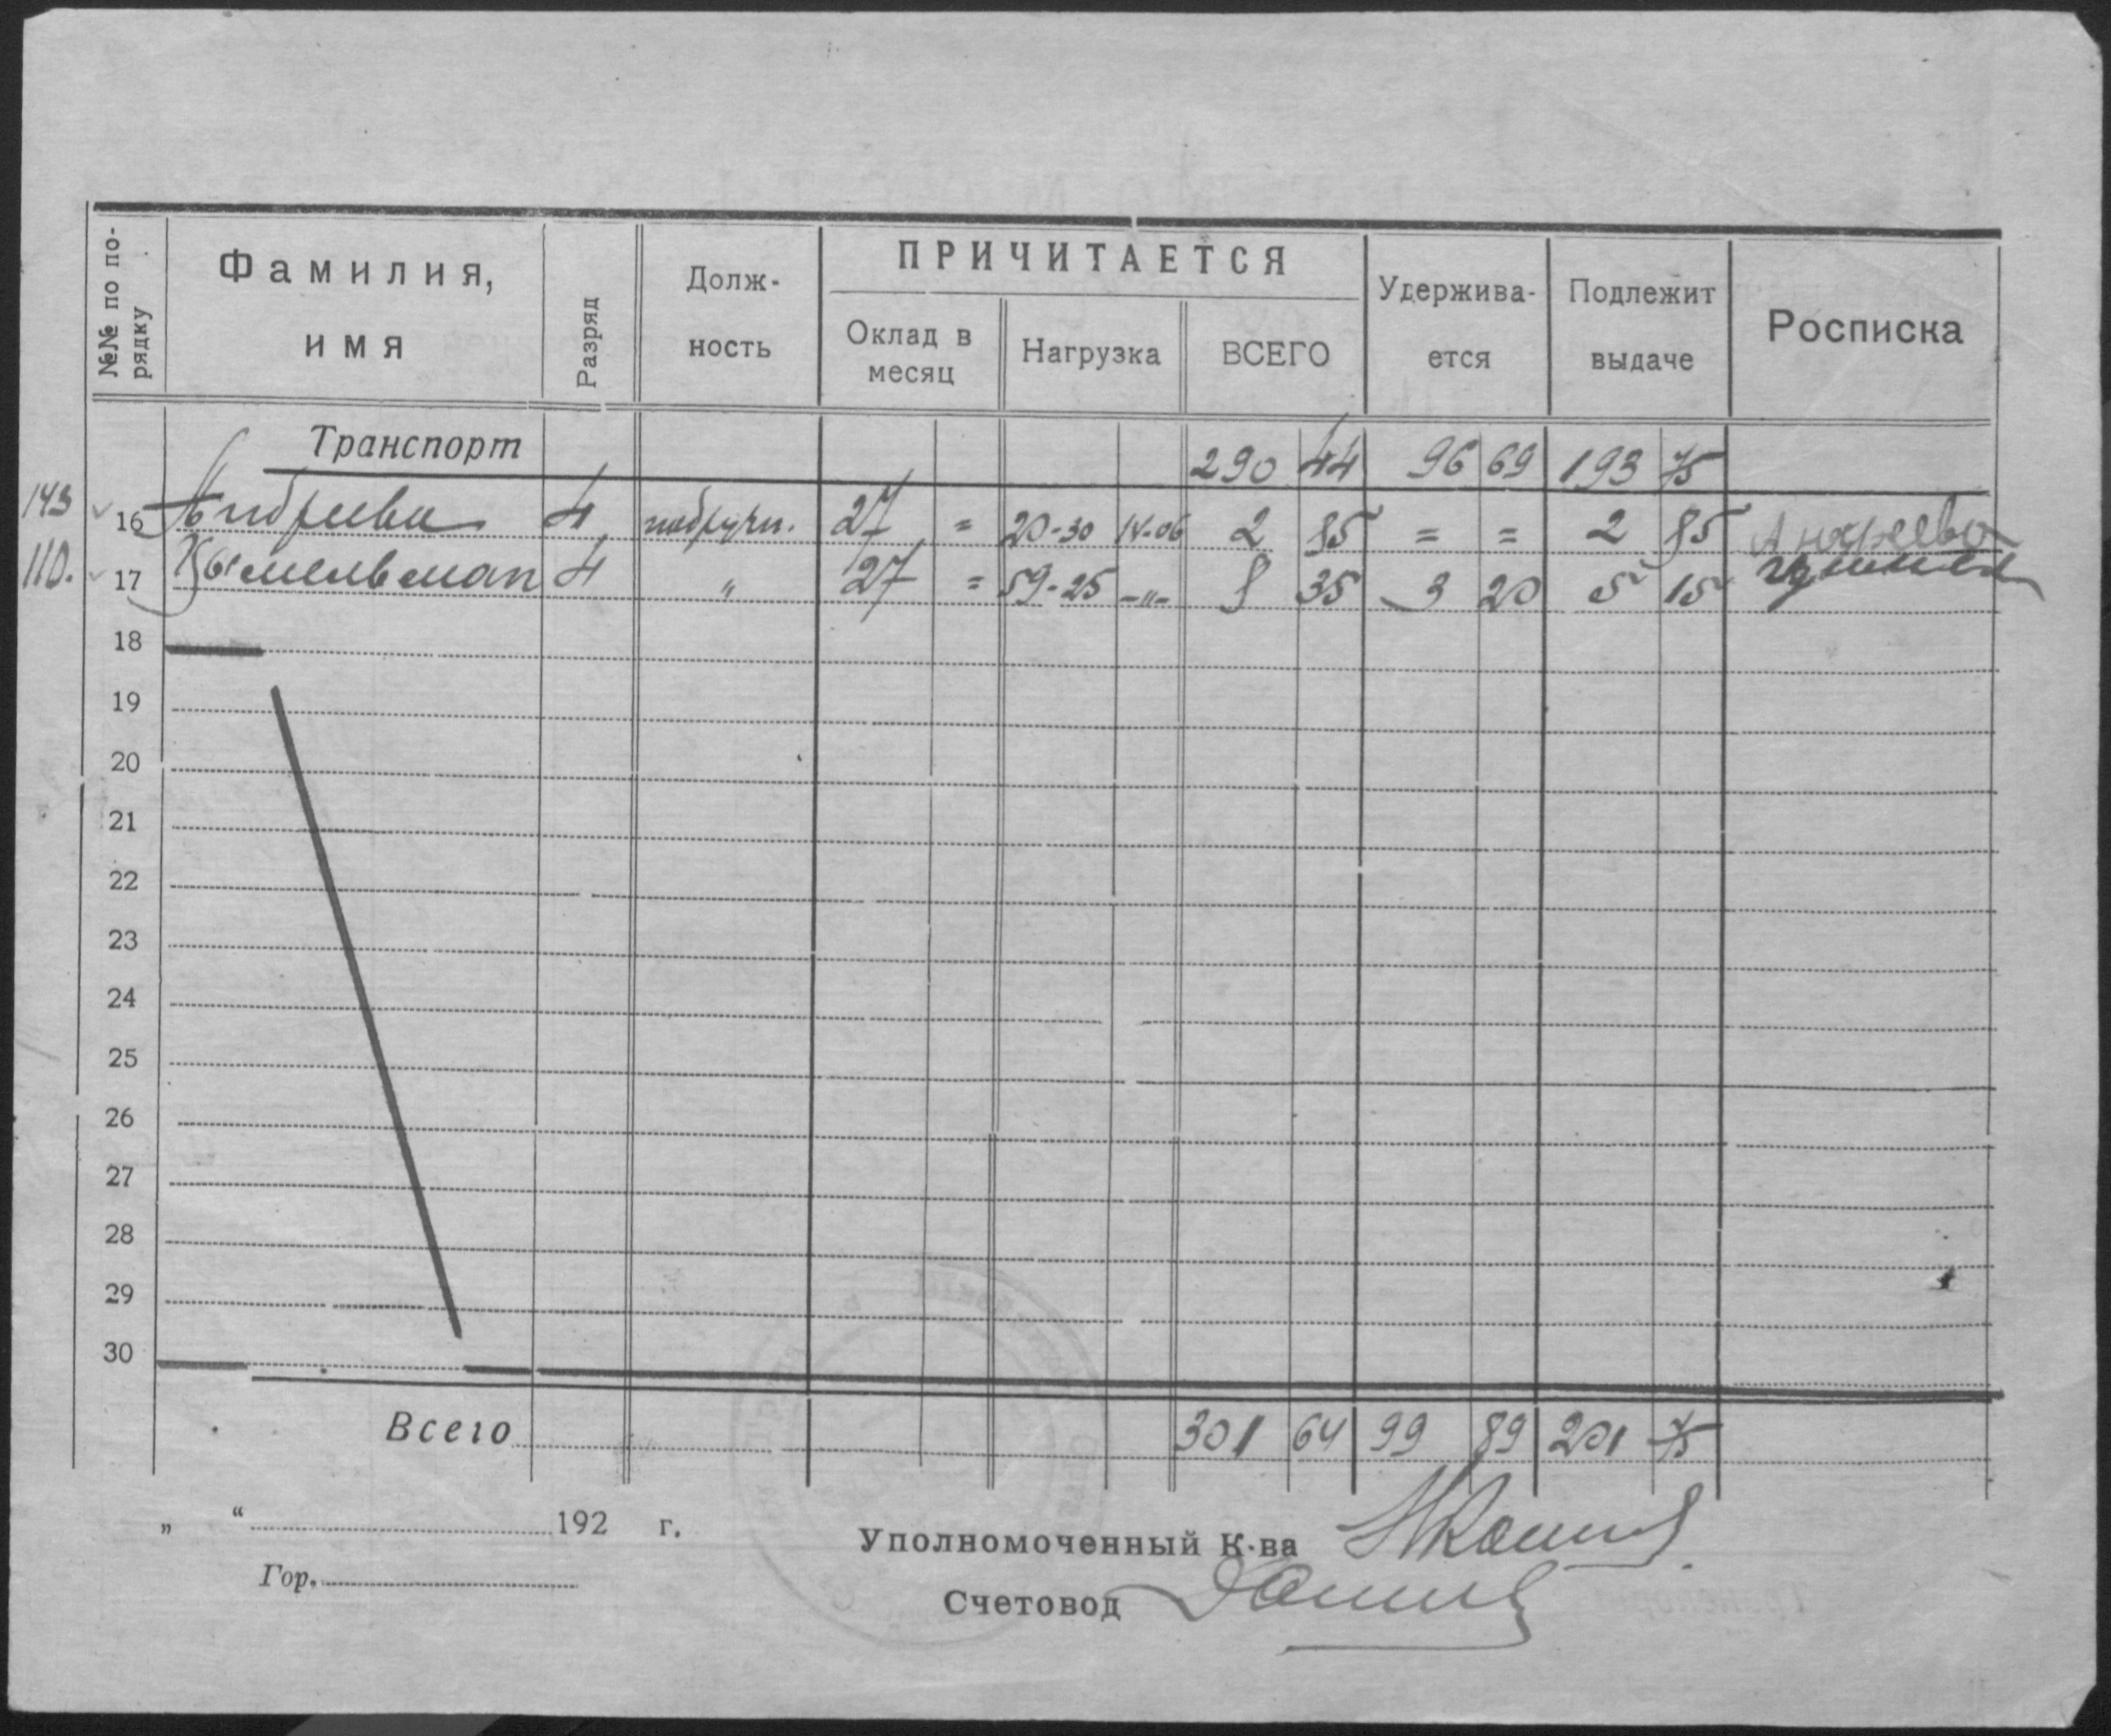 №№ по по-
рядку
Фамилия,
имя
Разряд
Долж-
ность
ПРИЧИТАЕТСЯ
Оклад в
месяц
Нагрузка
ВСЕГО
Удержива-
ется
Подлежит
выдаче
Росписка
Транспорт 290 44 96 69 193 75
143 16 Андреева 4 подручн. 27 = 20-30 14-06 2 85 = = 2 85 Андреева
110. 17 4 " 27 = 59-25 -"- 8 35 3 20 5 15
18
19
20
21
22
23
24
25
26
27
28
29
30
Всего 301 64 99 89 201 75
„ “ 192 г.
Гор.
Уполномоченный К-ва
Счетовод